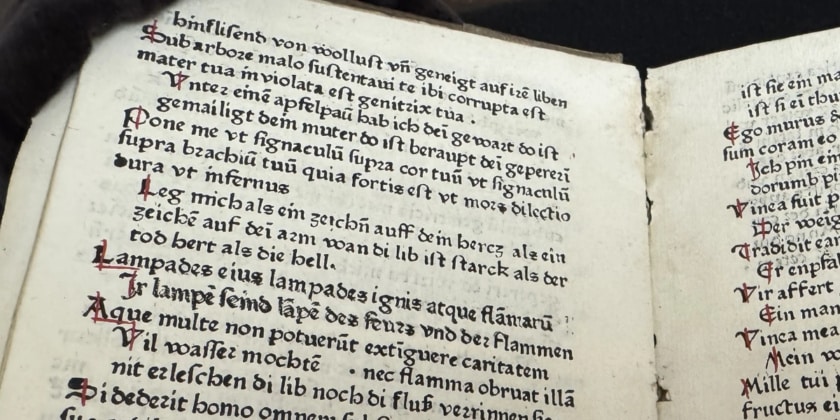 binflisend von wollust vñ geneigt auf ire liben
Sub arbore malo sustentaui te ibi corrupta est
mater tua inviolata est genitrix tua .
Vnter einē apfelpaū hab ich dei gewart do ist
gemailigt dein muter do ist beraupt dei geperei
Pone me vt signaculū supra cor tuū vt signaculū
supra brachiū tuū quia fortis est vt mors dilectio
dura vt infernus
Leg mich als ein zeichñ auff dein hercz als ein
zeichē auf dei arm wan di lib ist starck als der
tod hert als die hell.
Lampades eius lampades ignis atque flāmarū
Ir lampē seind lāpē des feurs vnd der flammen
Aque multe non potuerūt extiguere caritatem
Vil wasser mochtē . nec flamma obruat illā
nit erleschen di lib noch di fluß
Si dederit homo omnem
ist sie ein
ist si ei
Ego murus
sum coram eo
Ich pin
dorumb
Vinea fuit
Der
Tradidit ea
Er enpfal
Vir affert
Ein man
Vinea mea
Mein
Mille tui
fructus